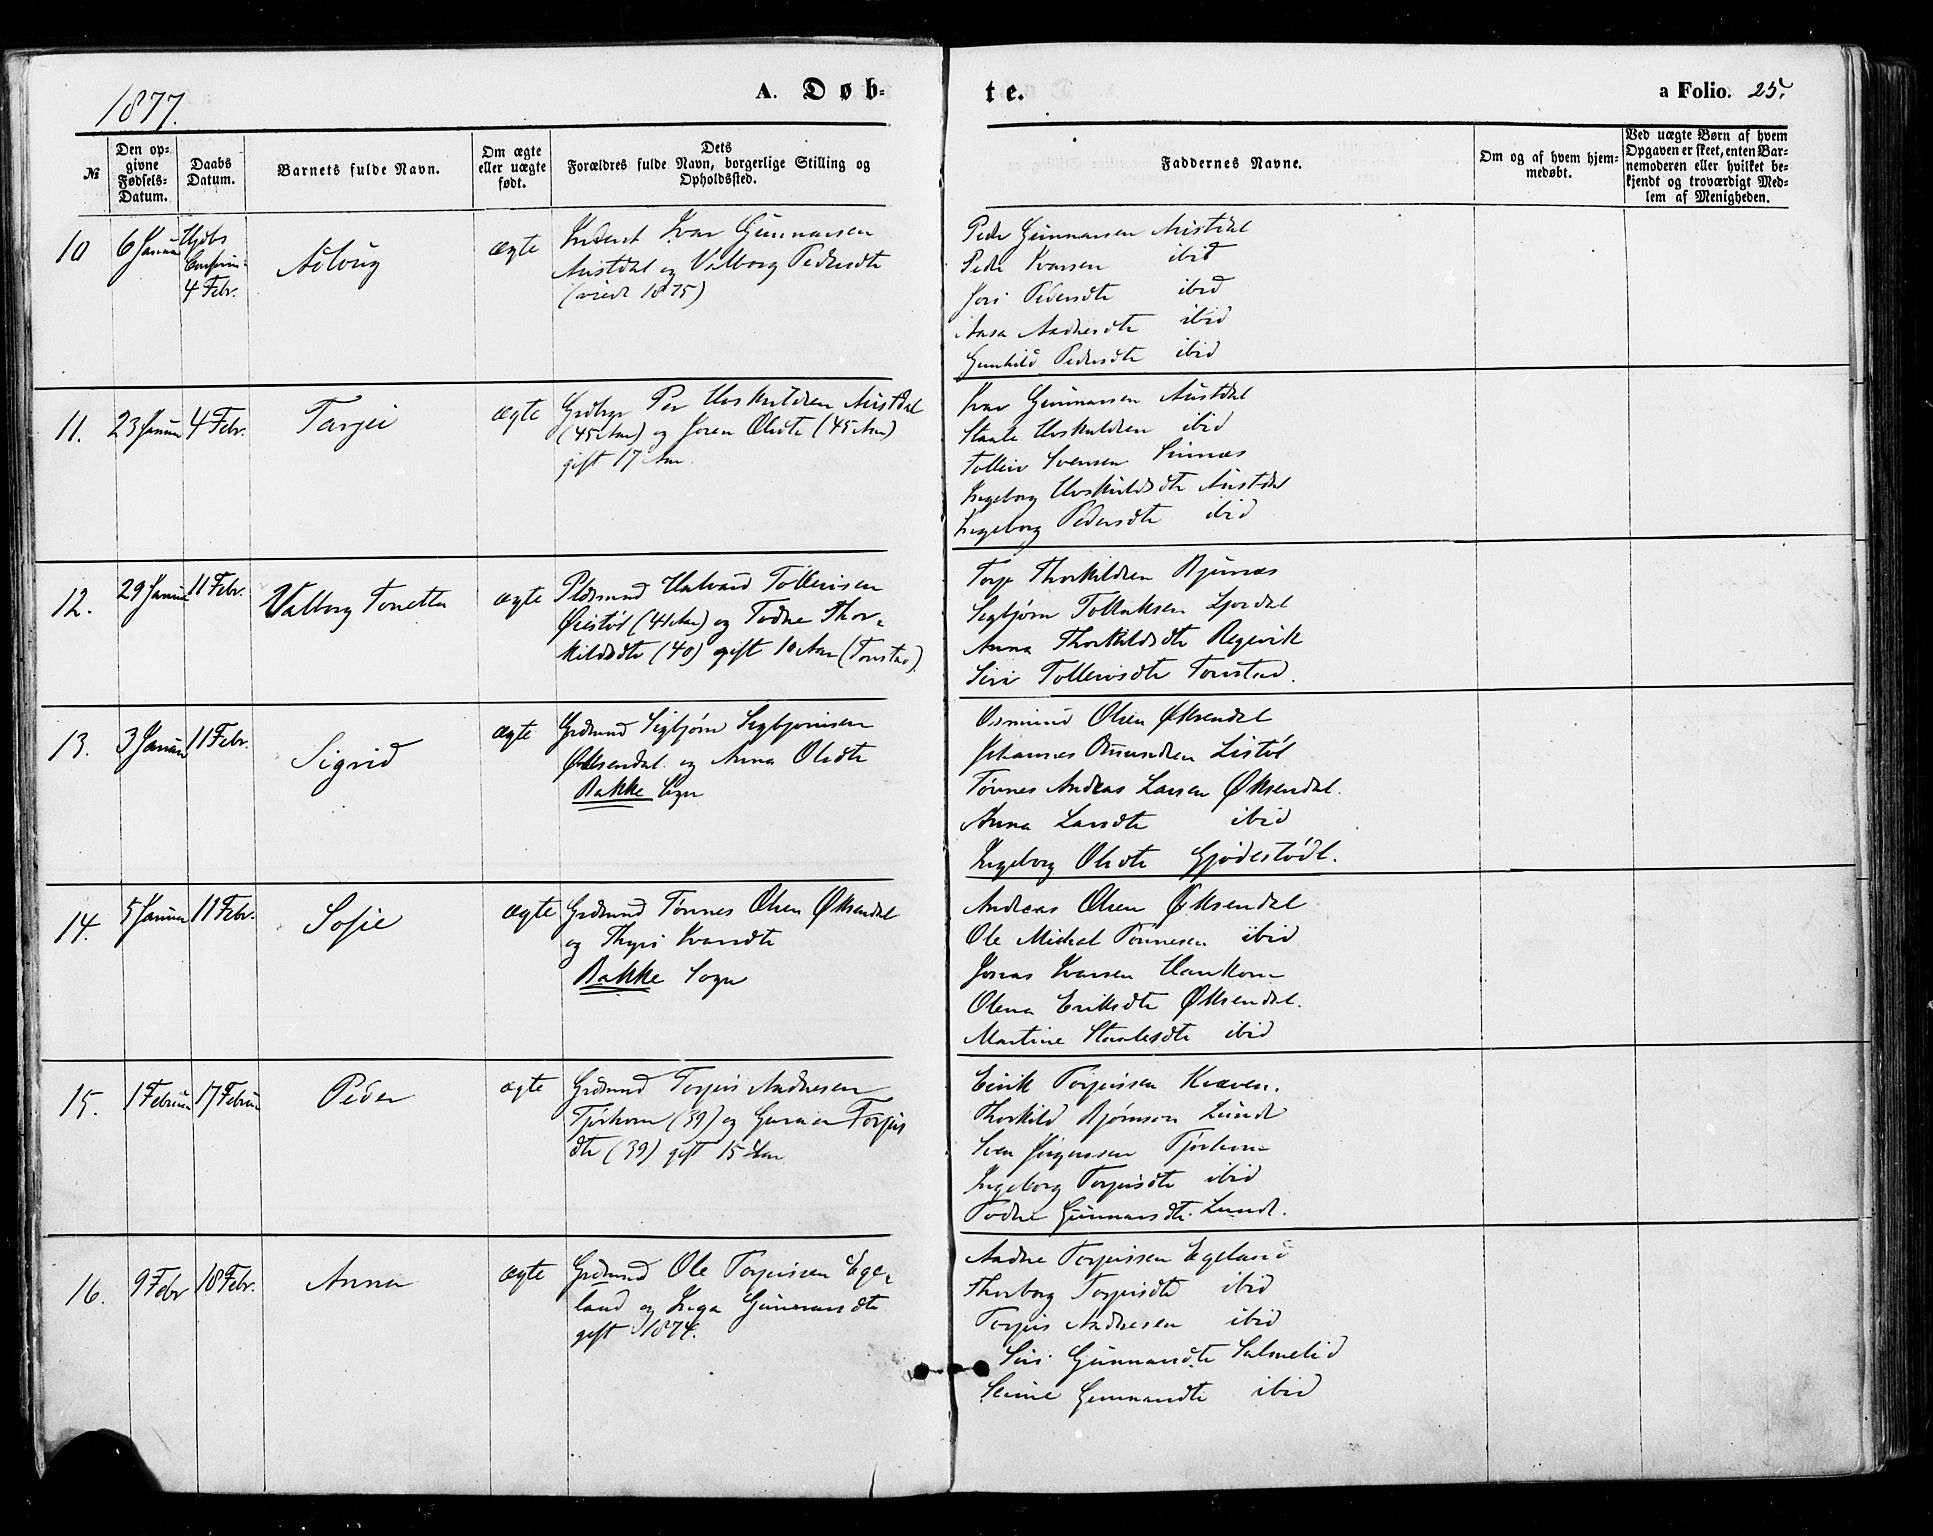 1877.
A. Døb-
te.
a Folio. 25.
№
Den op-
givne
Fødsels-
Datum.
Daabs
Datum.
Barnets fulde Navn.
Om ægte
eller uægte
født.
Dets
Forældres fulde Navn, borgerlige Stilling og
Opholdssted.
Faddernes Navne.
Om og af hvem hjem-
medøbt.
Ved uægte Børn af hvem
Opgaven er skeet, enten Bar-
nemoderen eller hvilket be-
kjendt og troværdigt Med-
lem af Menigheden.
10
6 Januar
Hjdbs
4 Febr.
Aslaug
ægte
Inderst Ivar Gunnarsen
Austdal og Valborg Pedersdtr
(viede 1875)
Peder Gunnarsen Austdal
Peder Ivarsen ibid
Pedersdtr ibid
Aasa Andersdtr ibid
Gunhild Pedersdtr ibid
11.
23 Januar
4 Febr.
Tarjei
ægte
Per Austdal
(45 Aar) og Joren Olsdtr (45 Aar)
gift 17 Aar.
Ivar Gunnarsen Austdal
Staale ibid
Tolleiv Svensen Sinnæs
Ingeborg Austdal
Ingeborg Pedersdtr ibid
12.
29 Januar
11 Febr.
Valborg Tonetta
ægte
Pldsmand Halvard Tollevsen
Øiestøl (41 Aar) og Todne Thor-
kildsdtr (40) gift 10 Aar (Tonstad).
Thorkildsen Bjunæs
Sigbjørn Tollaksen Ljosdal
Anna Thorkildsdtr Regevik
Siri Tollevsdtr Tonstad.
13.
3 Januar
11 Febr.
Sigrid
ægte
Grdmand Sigbjørn Sigbjørnsen
Øksendal og Anna Olsdtr
Bakke Sogn
Osmund Olsen Øksendal
Johannes Omundsen Listøl
Tønnes Andreas Larsen Øksendal.
Anna Larsdtr ibid
Ingeborg Olsdtr Gjødestødl.
14.
5 Januar
11 Febr.
Sofie
ægte
Grdmand Tønnes Olsen Øksendal
og Thyri Ivarsdtr
Bakke Sogn
Andreas Olsen Øksendal
Ole Mikal Tønnesen ibid
Jonas Ivarsen Haukom
Olena Eriksdtr Øksendal.
Martine Staalesdtr ibid
15.
1 Februar
17 Februar
Peder
ægte
Grdmand Torjus Andresen
Tjørhom (39) og Gunna Torjus
dtr (39) gift 15 Aar
Eirik Torjussen Kvæven.
Thorkild Bjørnson Lunde
Sven Jørgenssen Tjørhom
Ingeborg Torjusdtr ibid
Todne Gunnarsdtr. Lunde.
16.
9 Febr
18 Febr.
Anna
ægte
Grdmand Ole Torjussen Ege-
land og Inga Gunnarsdtr
gift 1874.
Andre Torjussen Egeland
Thorborg Torjusdtr ibid
Torjus Andresen ibid
Siri Gunnarsdtr Salmelid
Gunnarsdtr ibid